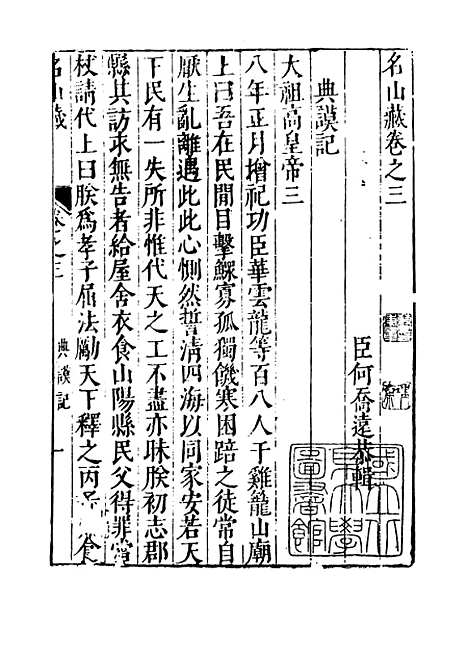 名山藏卷之三
臣何喬遠恭輯
典謨記
太祖高皇帝三
八年正月增祀功臣華雲龍等百八人于雞籠山廟
上曰吾在民間目擊鰥寡孤獨饑寒困踣之徒常自
厭生亂離遇此此心惻然誓清四海以同家安若天
下民有一失所非惟代天之工不盡亦昧朕初志郡
縣其訪求無告者給屋舍衣食山陽縣民父得罪當
杖請代上曰朕爲孝子屈法勵天下釋之丙
食
名山藏
卷之三
典謨記
一
國立北
平大學
圖書館